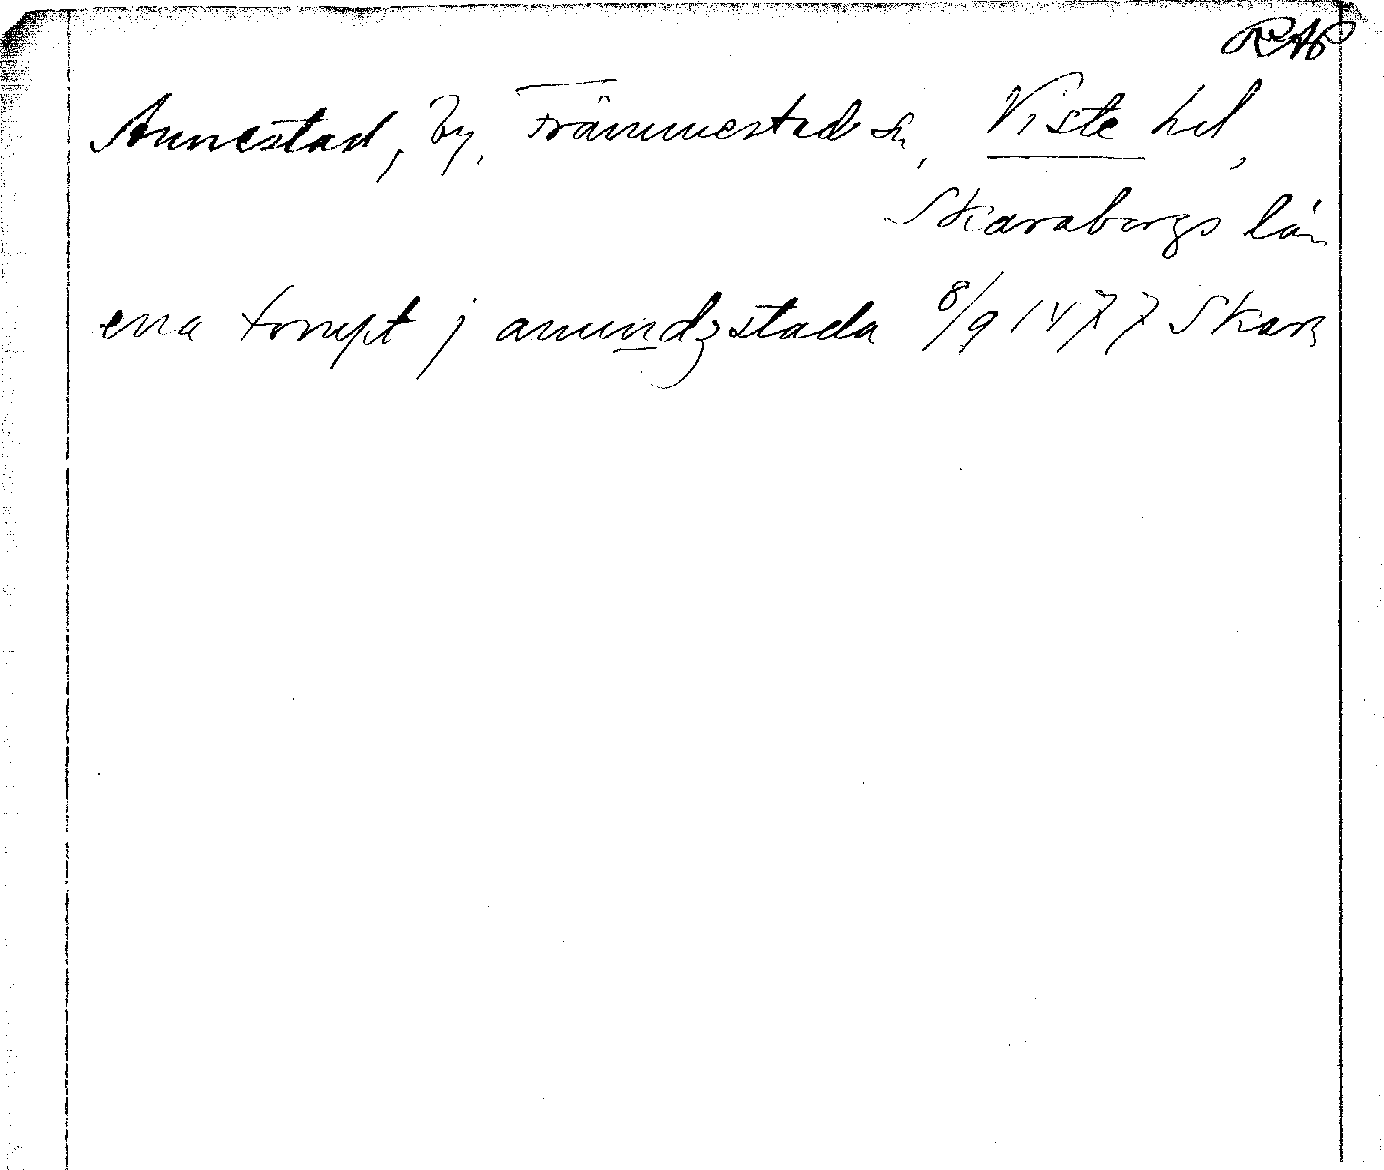 RAP
Annestad, by, Främmestad sn, Viste hd,
Skaraborgs län
ena tompt j amundzstada 8/9 1477 Skara